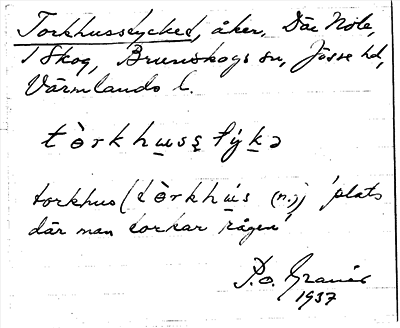 Torkhusstycket, åker, Där Nole,
i Skog, Brunskogs sn, Jösse hd,
Värmlands l.
torkhus (tòrkhús (n.)) 'plats
där man torkar rågen'
P.O. Granér
1937